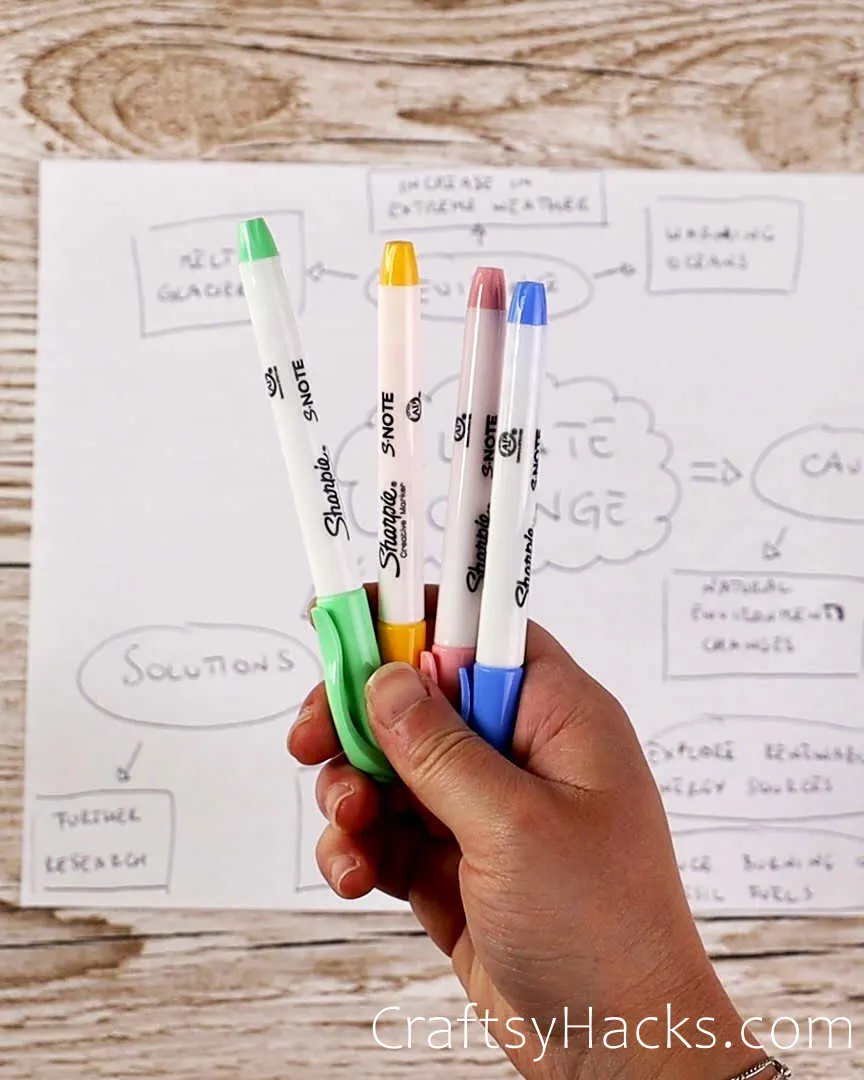 INCREASE IN
EXTREME WEATHER
MELT
GLACIER
WARMING
OCEANS
S·NOTE
Sharpie®
S·NOTE
Sharpie®
Creative Marker
S·NOTE
Sharpie
S·NOTE
Sharpie
CHANGE
CAU
NATURAL
ENVIRONMENT
CHANGES
SOLUTIONS
FURTHER
RESEARCH
EXPLORE RENEWABL
SOURCES
BURNING
FUELS
CraftsyHacks.com